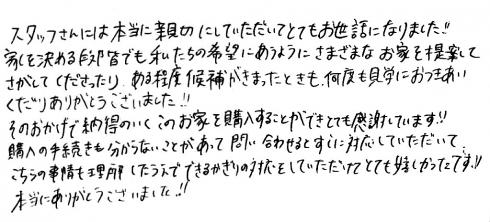 スタッフさんには本当に親切にしていただいてとてもお世話になりました!!
家を決める段階でも私たちの希望にあうようにさまざまなお家を提案して
さがしてくださったり、ある程度候補がきまったときも、何度も見学におつきあい
くださりありがとうございました!!
そのおかげで納得のいくこのお家を購入することができとても感謝しています!!
購入の手続きも分からないことがあって問い合わせるとすぐに対応していただいて、
こちらの事情も理解したうえでできるかぎりの対応をしていただけてとても嬉しかったです!!
本当にありがとうございました!!